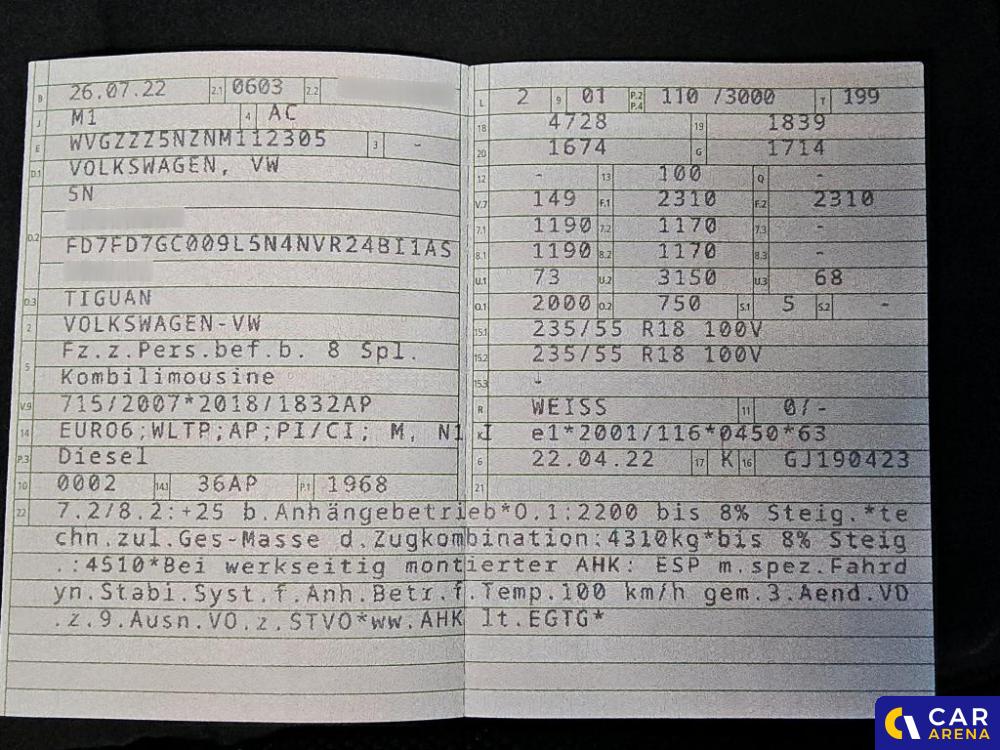 B 26.07.22 2.1 0603 2.2
J M1 4 AC
E WVGZZZ5NZNM112305 3 -
D.1 VOLKSWAGEN, VW
5N
D.2
FD7FD7GC009L5N4NVR24BI1AS
D.3 TIGUAN
2 VOLKSWAGEN-VW
5 Fz.z.Pers.bef.b. 8 Spl.
Kombilimousine
V.9 715/2007*2018/1832AP
14 EURO6;WLTP;AP;PI/CI; M, N1 I
P.3 Diesel
10 0002 14.1 36AP P.1 1968
L 2 9 01 P.2 P.4 110 /3000 T 199
18 4728 19 1839
20 1674 G 1714
12 - 13 100 Q -
V.7 149 F.1 2310 F.2 2310
7.1 1190 7.2 1170 7.3 -
8.1 1190 8.2 1170 8.3 -
U.1 73 U.2 3150 U.3 68
O.1 2000 O.2 750 S.1 5 S.2 -
15.1 235/55 R18 100V
15.2 235/55 R18 100V
15.3 -
R WEISS 11 0/-
K e1*2001/116*0450*63
6 22.04.22 17 K 16 GJ190423
21
22 7.2/8.2:+25 b.Anhängebetrieb*O.1:2200 bis 8% Steig.*te
chn.zul.Ges-Masse d.Zugkombination:4310kg*bis 8% Steig
.:4510*Bei werkseitig montierter AHK: ESP m.spez.Fahrd
yn.Stabi.Syst.f.Anh.Betr.f.Temp.100 km/h gem.3.Aend.VO
.z.9.Ausn.VO.z.STVO*ww.AHK lt.EGTG*
CAR
ARENA